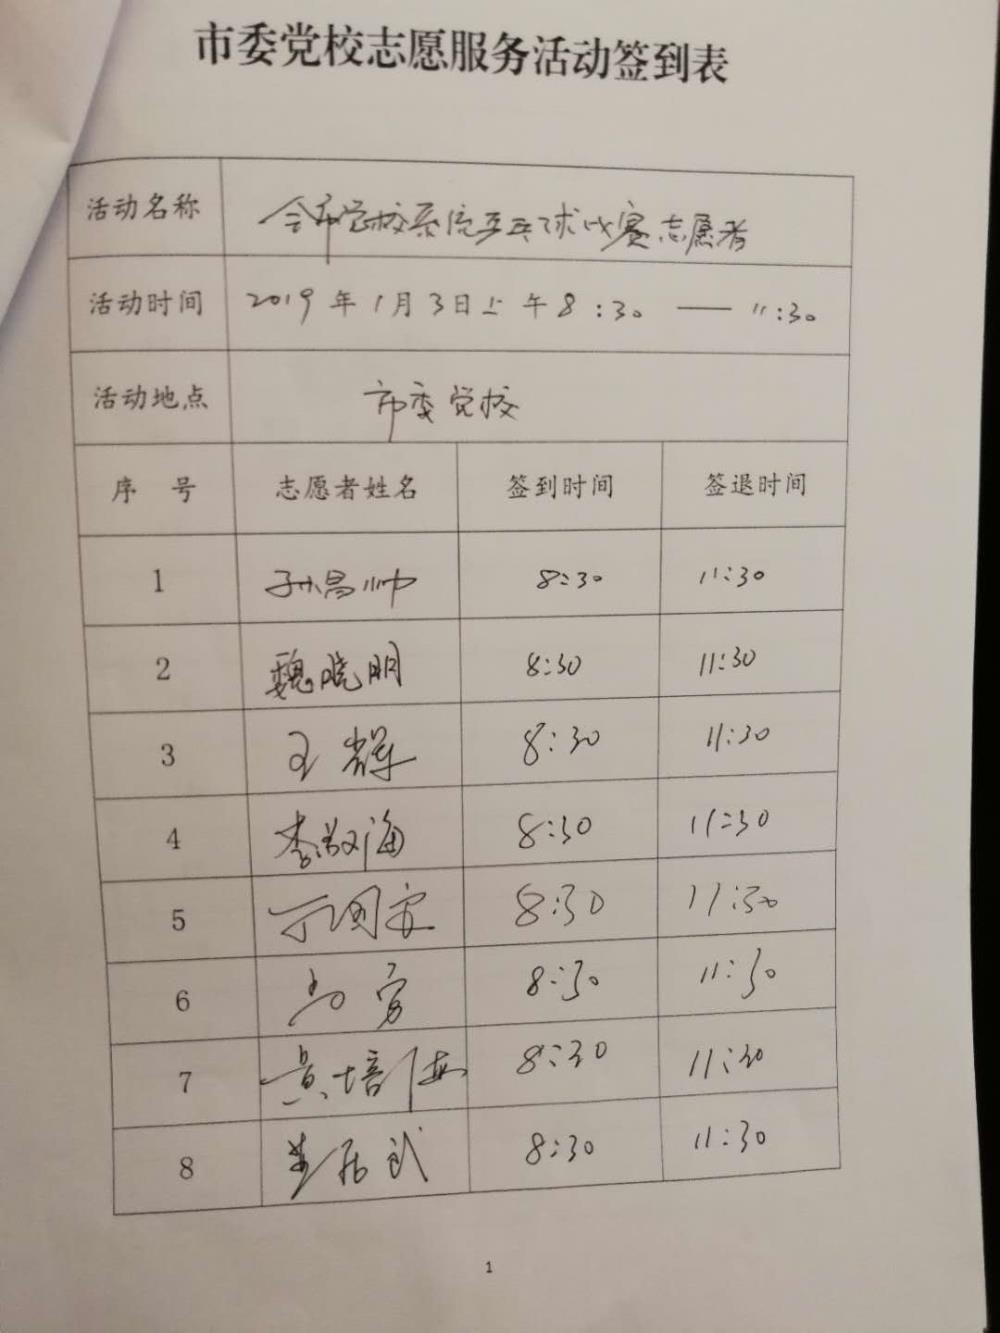 市委党校志愿服务活动签到表
活动名称 全市党校系统乒乓球比赛志愿者
活动时间 2019年1月3日上午8:30 —— 11:30
活动地点 市委党校
序 号 志愿者姓名 签到时间 签退时间
1 孙昌帅 8:30 11:30
2 魏晓明 8:30 11:30
3 王辉 8:30 11:30
4 李敬海 8:30 11:30
5 丁国安 8:30 11:30
6 8:30 11:30
7 黄培海 8:30 11:30
8 8:30 11:30
1